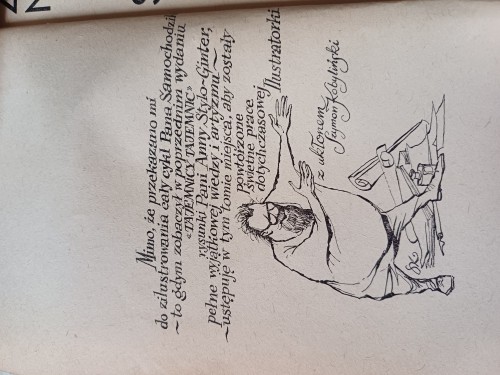 Mimo, że przekazano mi
do zilustrowania cały cykl Pana Samochodzik
~ to gdym zobaczył w poprzednim wydaniu
«TAJEMNICY TAJEMNIC»
rysunki Pani Anny Stylo-Ginter,
pełne wyjątkowej wiedzy i artyzmu ~
~ ustępuję w tym tomie miejsca, aby zostały
powtórzone
świetne prace
dotychczasowej
Ilustratorki.
z ukłonem
Szymon Kobyliński